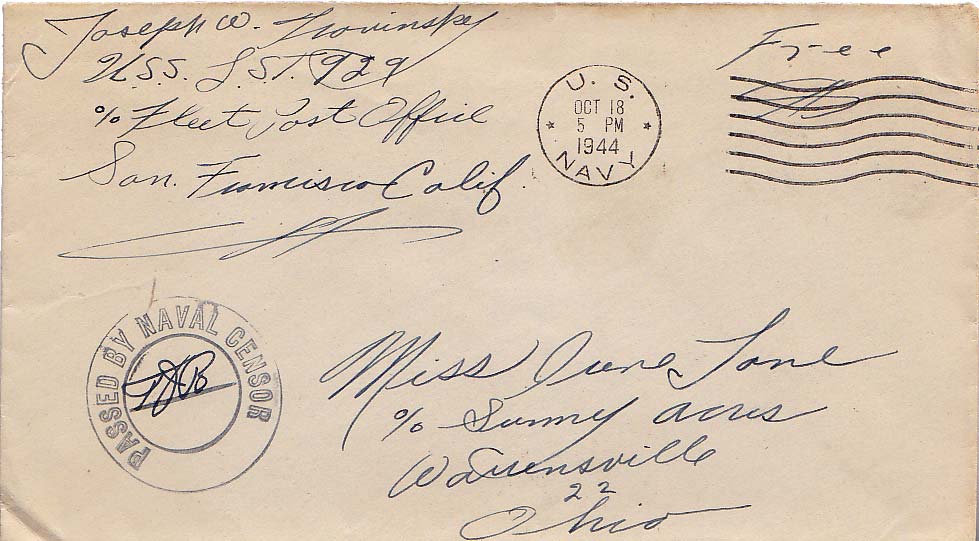 Joseph W.
U.S.S. L.S.T. 929
% Fleet Post Office
San. Francisco Calif.
U. S.
OCT 18
5 PM
1944
NAVY
Free
PASSED BY NAVAL CENSOR
Miss June Lane
% Sunny acres
Warrensville
22
Ohio